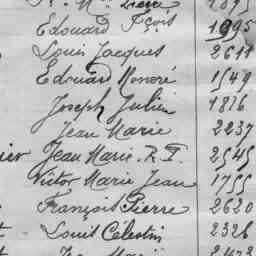 Marie 1895
Edouard Fçois 1995
Louis Jacques 2611
Edouard Honoré 1549
Joseph Julien 1876
Jean Marie 2237
Jean Marie R. T. 2545
Victor Marie Jean 1755
François Pierre 2620
Louis Célestin 2326